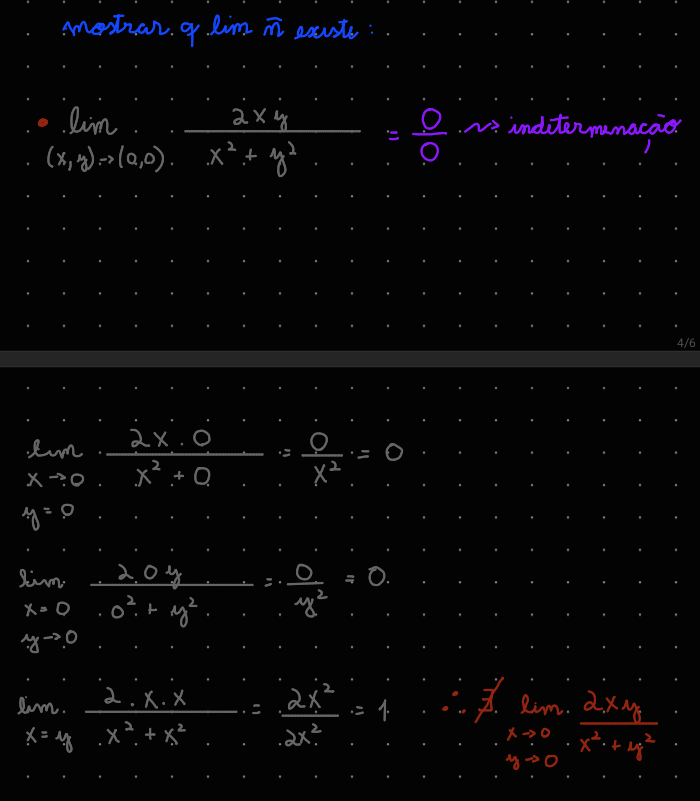 mostrar q lim ñ existe:
• lim (x,y)→(0,0) 2xy / x² + y² = 0/0 ⇝ indeterminação
4/6
lim x→0 y=0 2x.0 / x² + 0 = 0/x² = 0
lim x=0 y→0 2 0 y / 0² + y² = 0/y² = 0
lim x=y 2.x.x / x² + x² = 2x²/2x² = 1 ∴ ∄ lim x→0 y→0 2xy / x² + y²